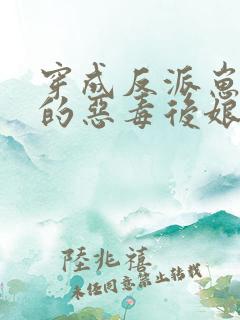 穿成反派崽
的惡毒後娘
陸兆禧
未经同意禁止转载